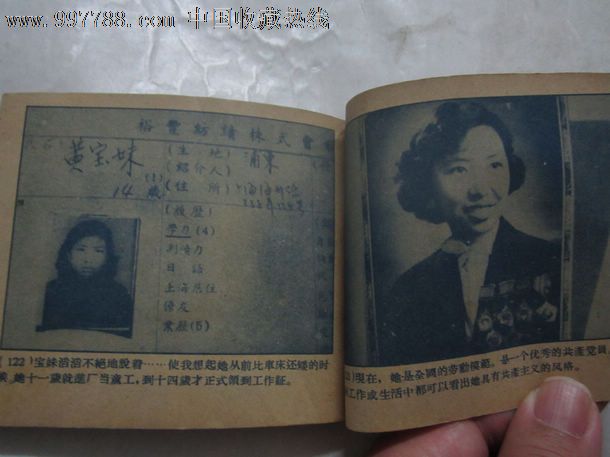 www.997788.com 中国收藏热线
裕豐紡績株式會
黃宝妹
(生 地) 浦東
(紹介人)
(1)
14歲
(住 所)
(履歷)
学力(4)
判考力
日語
上海居住
係友
業歷(5)
(122)宝妹滔滔不絕地說着……使我想起她从前比車床还矮的时
候,她十一歲就進厂当童工,到十四歲才正式領到工作証。
)現在,她是全國的劳動模範,是一个优秀的共產党員,
工作或生活中都可以看出她具有共產主义的风格。